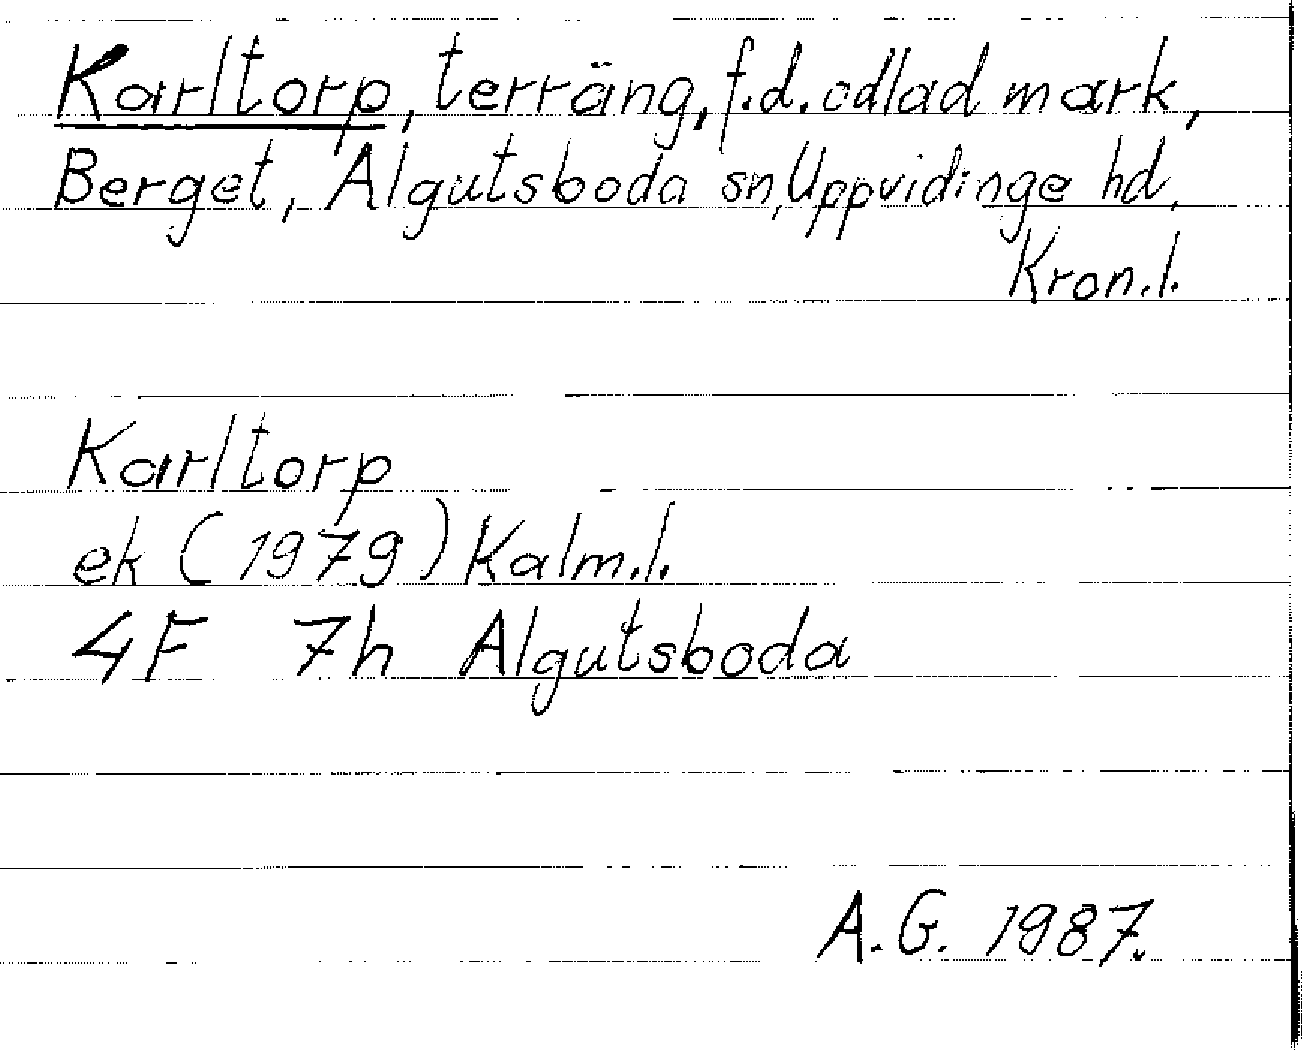 Karltorp, terräng, f.d. odlad mark,
Berget, Algutsboda sn, Uppvidinge hd,
Kron.l.
Karltorp
ek (1979) Kalm.l.
4F 7h Algutsboda
A.G. 1987.